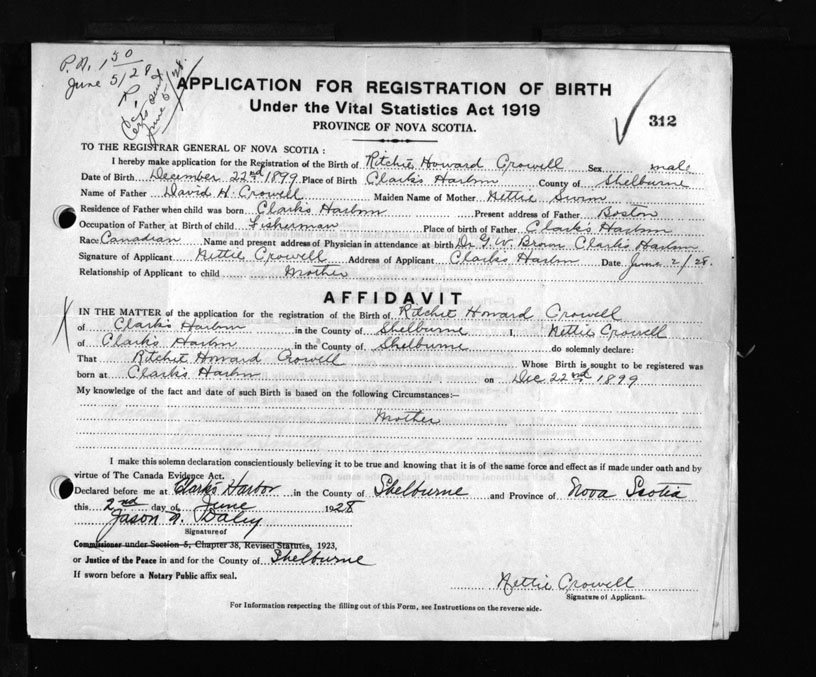 P.N. 1 50
June 5/28
R.
Certs sent
June 5-/28.
APPLICATION FOR REGISTRATION OF BIRTH
Under the Vital Statistics Act 1919
PROVINCE OF NOVA SCOTIA.
312
TO THE REGISTRAR GENERAL OF NOVA SCOTIA :
I hereby make application for the Registration of the Birth of Ritchie Howard Crowell Sex male
Date of Birth December 22nd 1899 Place of Birth Clark's Harbor County of Shelburne
Name of Father David H. Crowell Maiden Name of Mother Nettie Swim
Residence of Father when child was born Clark's Harbor Present address of Father Boston
Occupation of Father at Birth of child Fisherman Place of birth of Father Clark's Harbor
Race Canadian Name and present address of Physician in attendance at birth Dr G. W. Brown Clark's Harbor
Signature of Applicant Nettie Crowell Address of Applicant Clark's Harbor Date June 2/28.
Relationship of Applicant to child Mother
AFFIDAVIT
IN THE MATTER of the application for the registration of the Birth of Ritchie Howard Crowell
of Clark's Harbor in the County of Shelburne I, Nettie Crowell
of Clark's Harbor in the County of Shelburne do solemnly declare:
That Ritchie Howard Crowell Whose Birth is sought to be registered was
born at Clark's Harbor on Dec 22nd 1899
My knowledge of the fact and date of such Birth is based on the following Circumstances:—
Mother
I make this solemn declaration conscientiously believing it to be true and knowing that it is of the same force and effect as if made under oath and by
virtue of The Canada Evidence Act.
Declared before me at Clark's Harbor in the County of Shelburne and Province of Nova Scotia
this 2nd day of June 1928
Jason A. Daley
Signature of
Commissioner under Section 5, Chapter 38, Revised Statutes, 1923,
or Justice of the Peace in and for the County of Shelburne
If sworn before a Notary Public affix seal.
Nettie Crowell
Signature of Applicant.
For Information respecting the filling out of this Form, see Instructions on the reverse side.